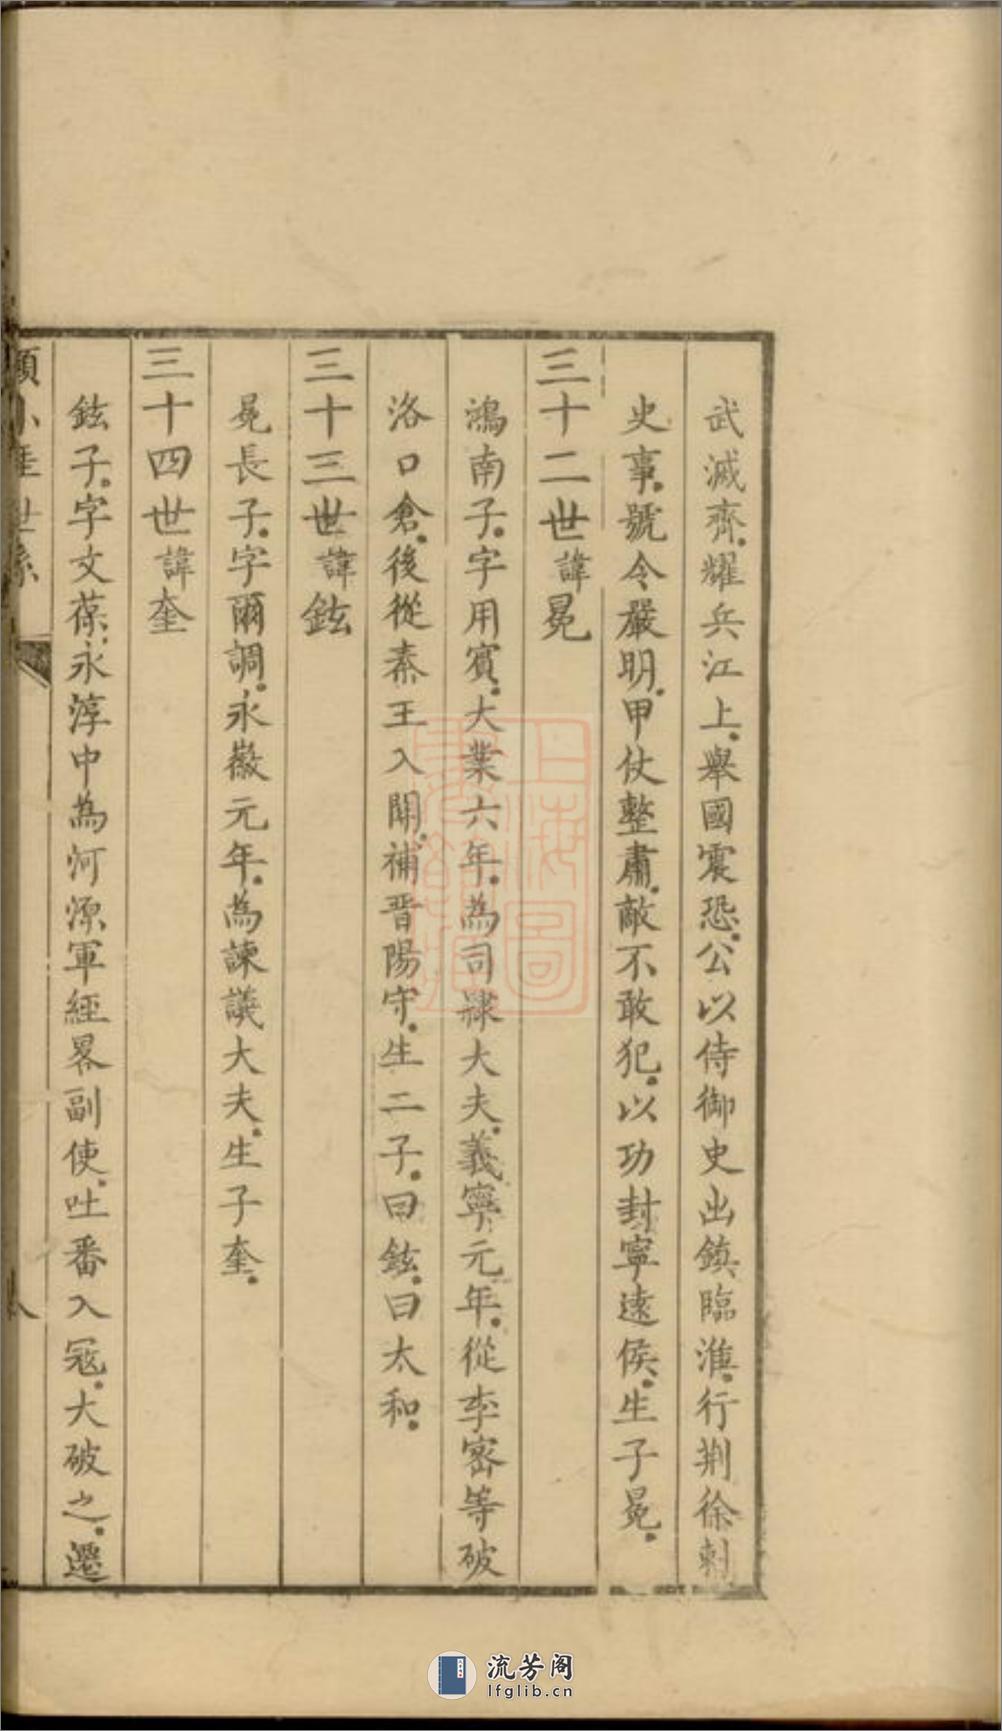 武滅齊耀兵江上舉國震恐公以侍御史出鎮臨淮行荆徐刺
史事號令嚴明甲仗整肅敵不敢犯以功封寧遠侯生子冕
三十二世諱冕
鴻南子字用賓大業六年為司隸大夫義寧元年從李密等破
洛口倉後從秦王入關補晉陽守生二子曰鉉曰太和
三十三世諱鉉
冕長子字爾調永徽元年為諫議大夫生子奎
三十四世諱奎
鉉子字文葆永淳中為河源軍經畧副使吐番入冦大破之遷
世系
八
上海圖
書館藏
流芳阁
lfglib.cn